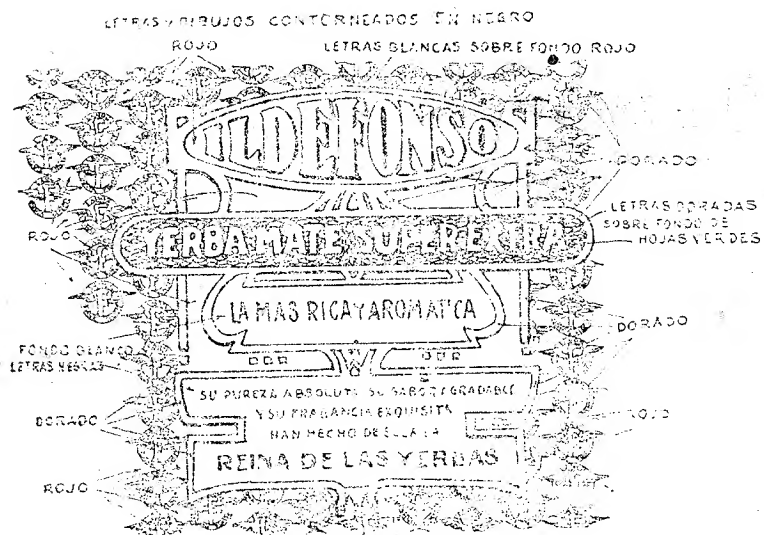 LETRAS Y DIBUJOS CONTORNEADOS EN NEGRO
ROJO
LETRAS BLANCAS SOBRE FONDO ROJO
ILDEFONSOS
DORADO
LETRAS DORADAS
SOBRE FONDO DE
HOJAS VERDES
ROJO
YERBA MATE SUPEREXTRA
LA MAS RICA Y AROMATICA
DORADO
FONDO BLANCO
LETRAS NEGRAS
SU PUREZA ABSOLUTA SU SABOR AGRADABLE
Y SU FRAGANCIA EXQUISITA
DORADO
ROJO
HAN HECHO DE ELLA LA
REINA DE LAS YERBAS
ROJO